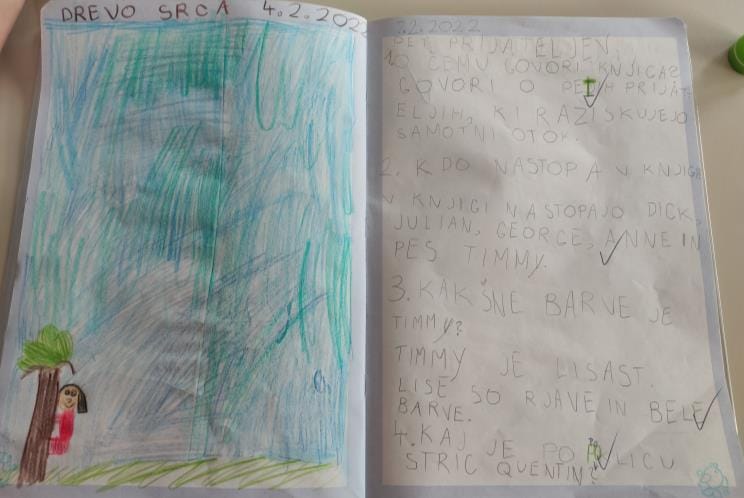 DREVO SRCA 4.2.2022
2.2.2022
PET PRIJATELJEV
1. O ČEMU GOVORI KNJIGA?
GOVORI O PETIH PRIJAT-
ELJIH, KI RAZISKUJEJO
SAMOTNI OTOK.
2. KDO NASTOPA V KNJIGI
V KNJIGI NASTOPAJO DICK,
JULIAN, GEORGE, ANNE IN
PES TIMMY.
3. KAKŠNE BARVE JE
TIMMY?
TIMMY JE LISAST.
LISE SO RJAVE IN BELE
BARVE.
4. KAJ JE PO POKLICU
STRIC QUENTIN?